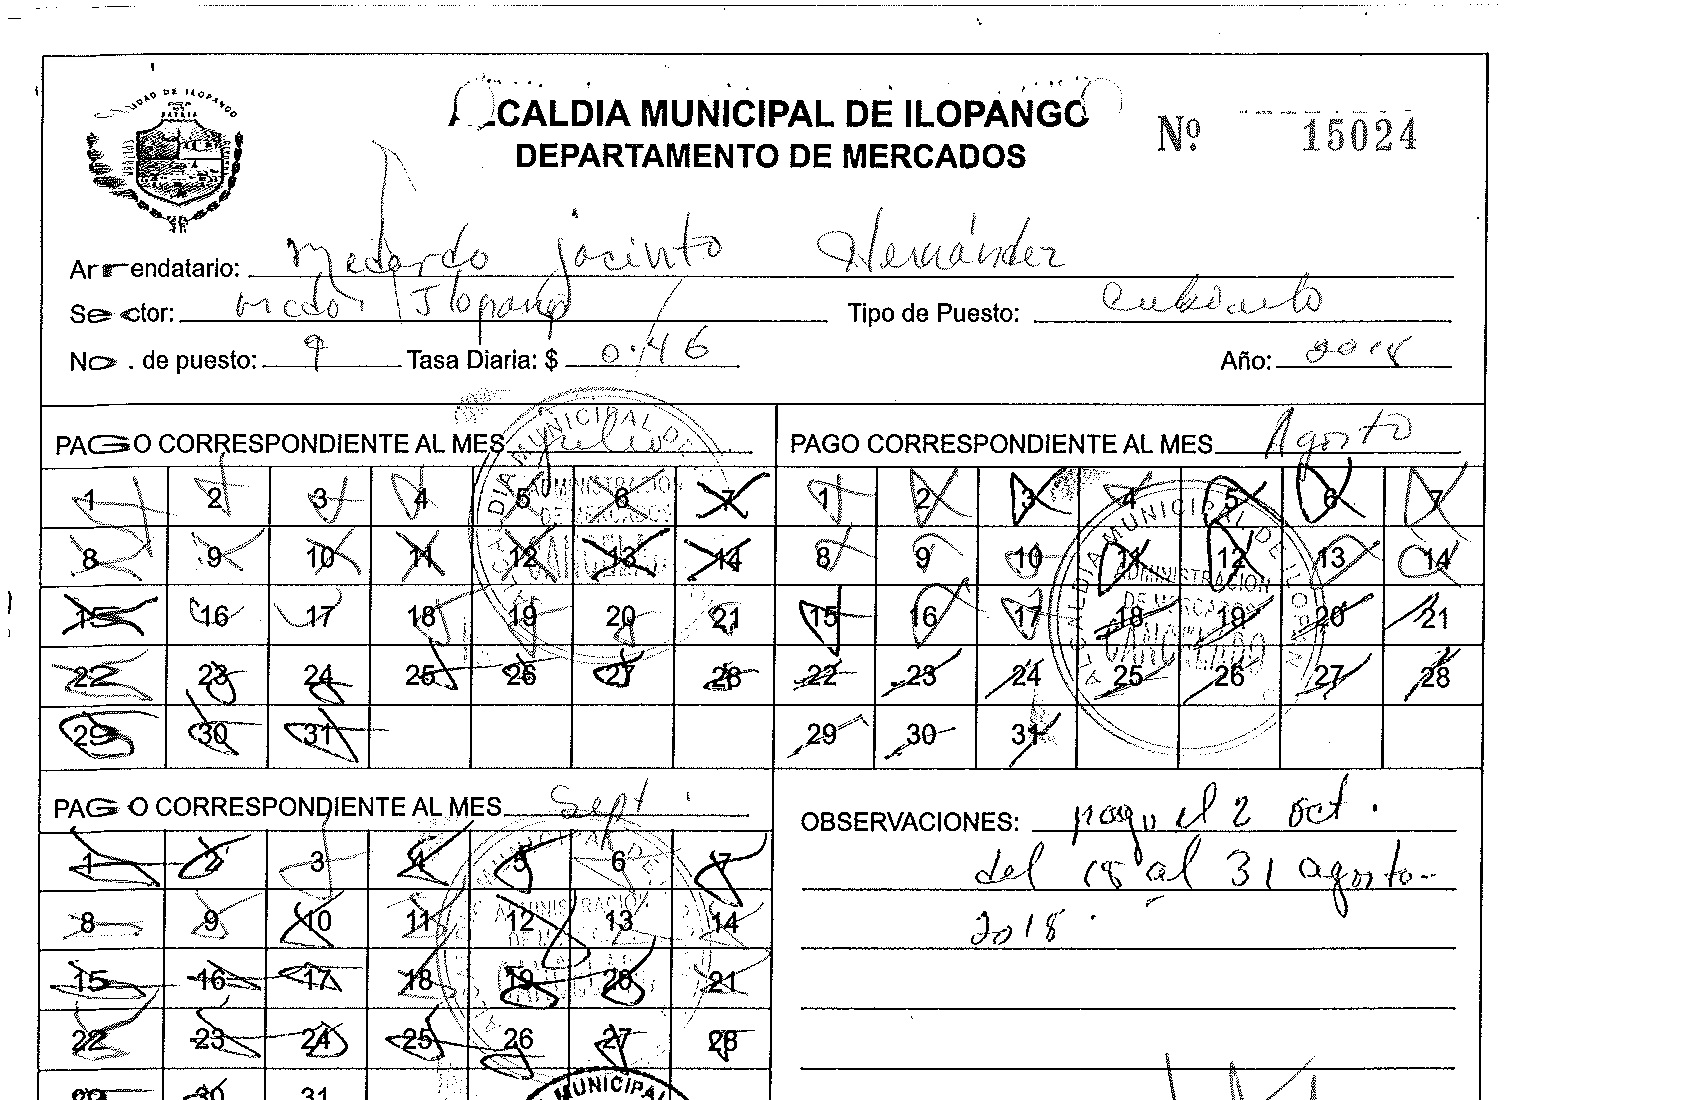 ALCALDIA MUNICIPAL DE ILOPANGO
DEPARTAMENTO DE MERCADOS
Nº 15024
Arrendatario: Medardo Jacinto Hernández
Sector: Ilopango Tipo de Puesto:
No. de puesto: 9 Tasa Diaria: $ 0.46 Año: 2018
PAGO CORRESPONDIENTE AL MES Julio
1 2 3 4 5 6 7
8 9 10 11 12 13 14
15 16 17 18 19 20 21
22 23 24 25 26 27 28
29 30 31
PAGO CORRESPONDIENTE AL MES Agosto
1 2 3 4 5 6 7
8 9 10 11 12 13 14
15 16 17 18 19 20 21
22 23 24 25 26 27 28
29 30 31
ADMINISTRACION
DE MERCADOS
CANCELADO
PAGO CORRESPONDIENTE AL MES Sept.
1 2 3 4 5 6 7
8 9 10 11 12 13 14
15 16 17 18 19 20 21
22 23 24 25 26 27 28
29 30 31
MUNICIPAL
OBSERVACIONES: pago el 2 oct.
del 18 al 31 agosto
2018.